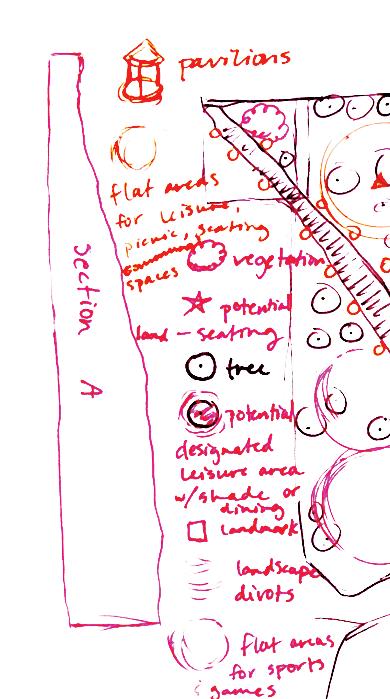 pavilions
flat areas
for leisure,
picnic, seating
spaces
vegetation
potential
land - seating
tree
potential
designated
leisure area
w/shade or
dining
landmark
landscape
divots
flat areas
for sports
& games
Section A